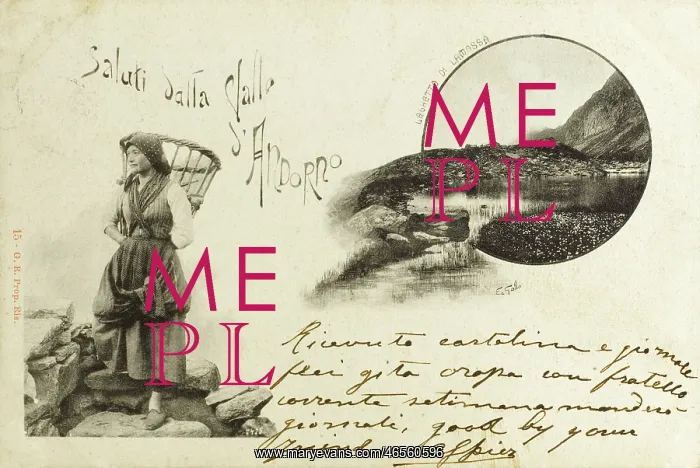 Saluti dalla Valle
d'Andorno
LAGHETTO DI LAMASSA
ME
PL
ME
PL
15 - G. E. Prop. Ris.
Ricevuto cartolina e giornale
feci gita oropa con fratello
corrente settimana manderò
giornali, good by your
friend
www.maryevans.com/46560596